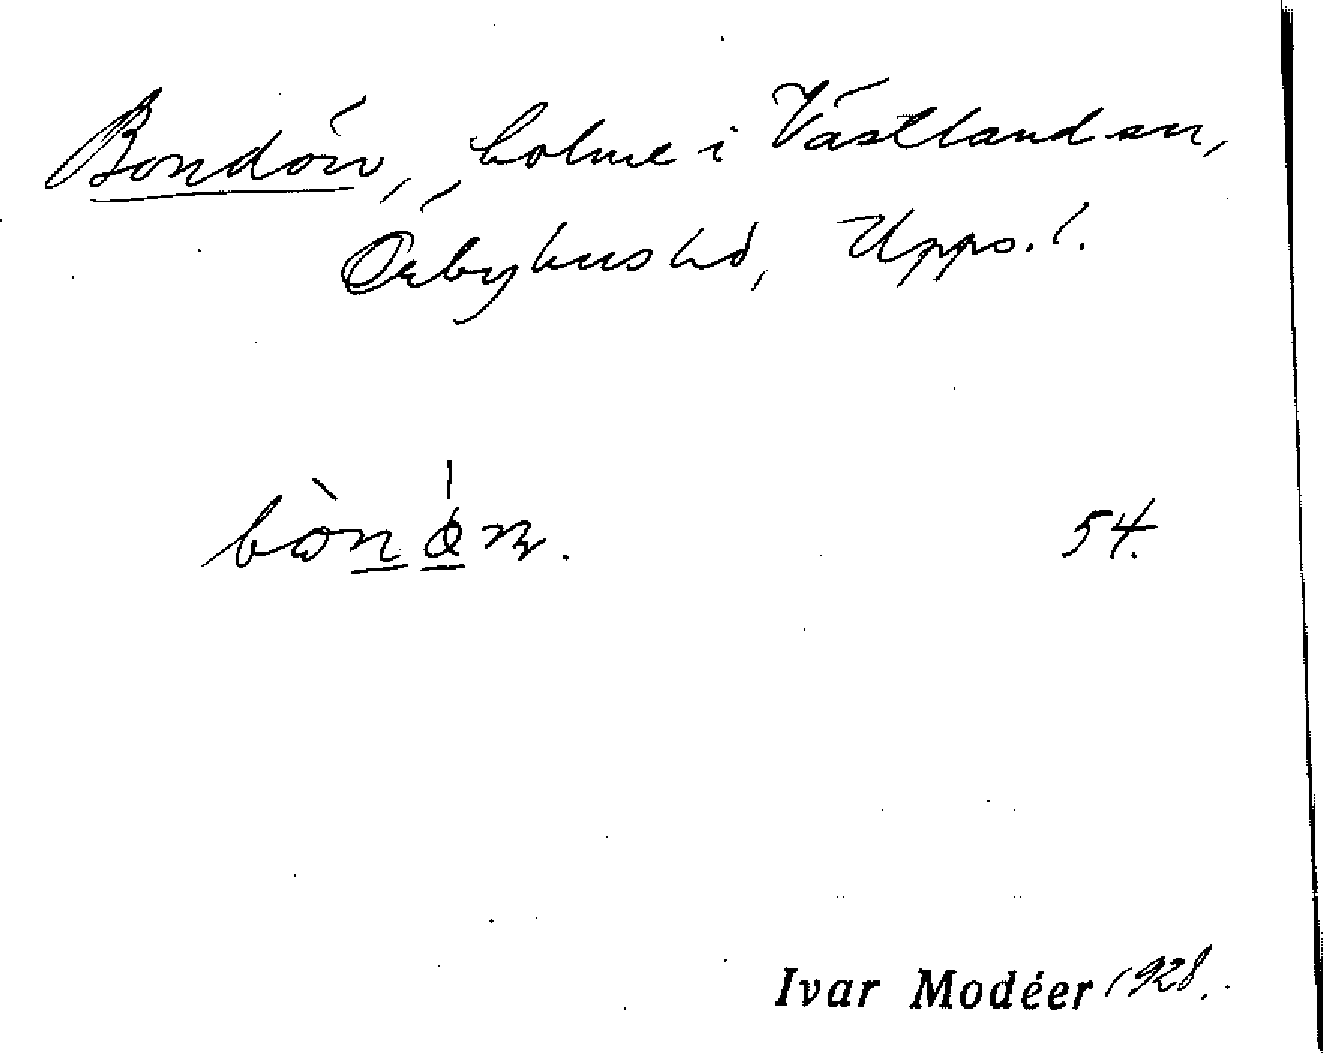 Bondön, holme i Västland sn,
Örbyhus hd, Upps. l.
bònǿn.
54.
Ivar Modéer 1928.